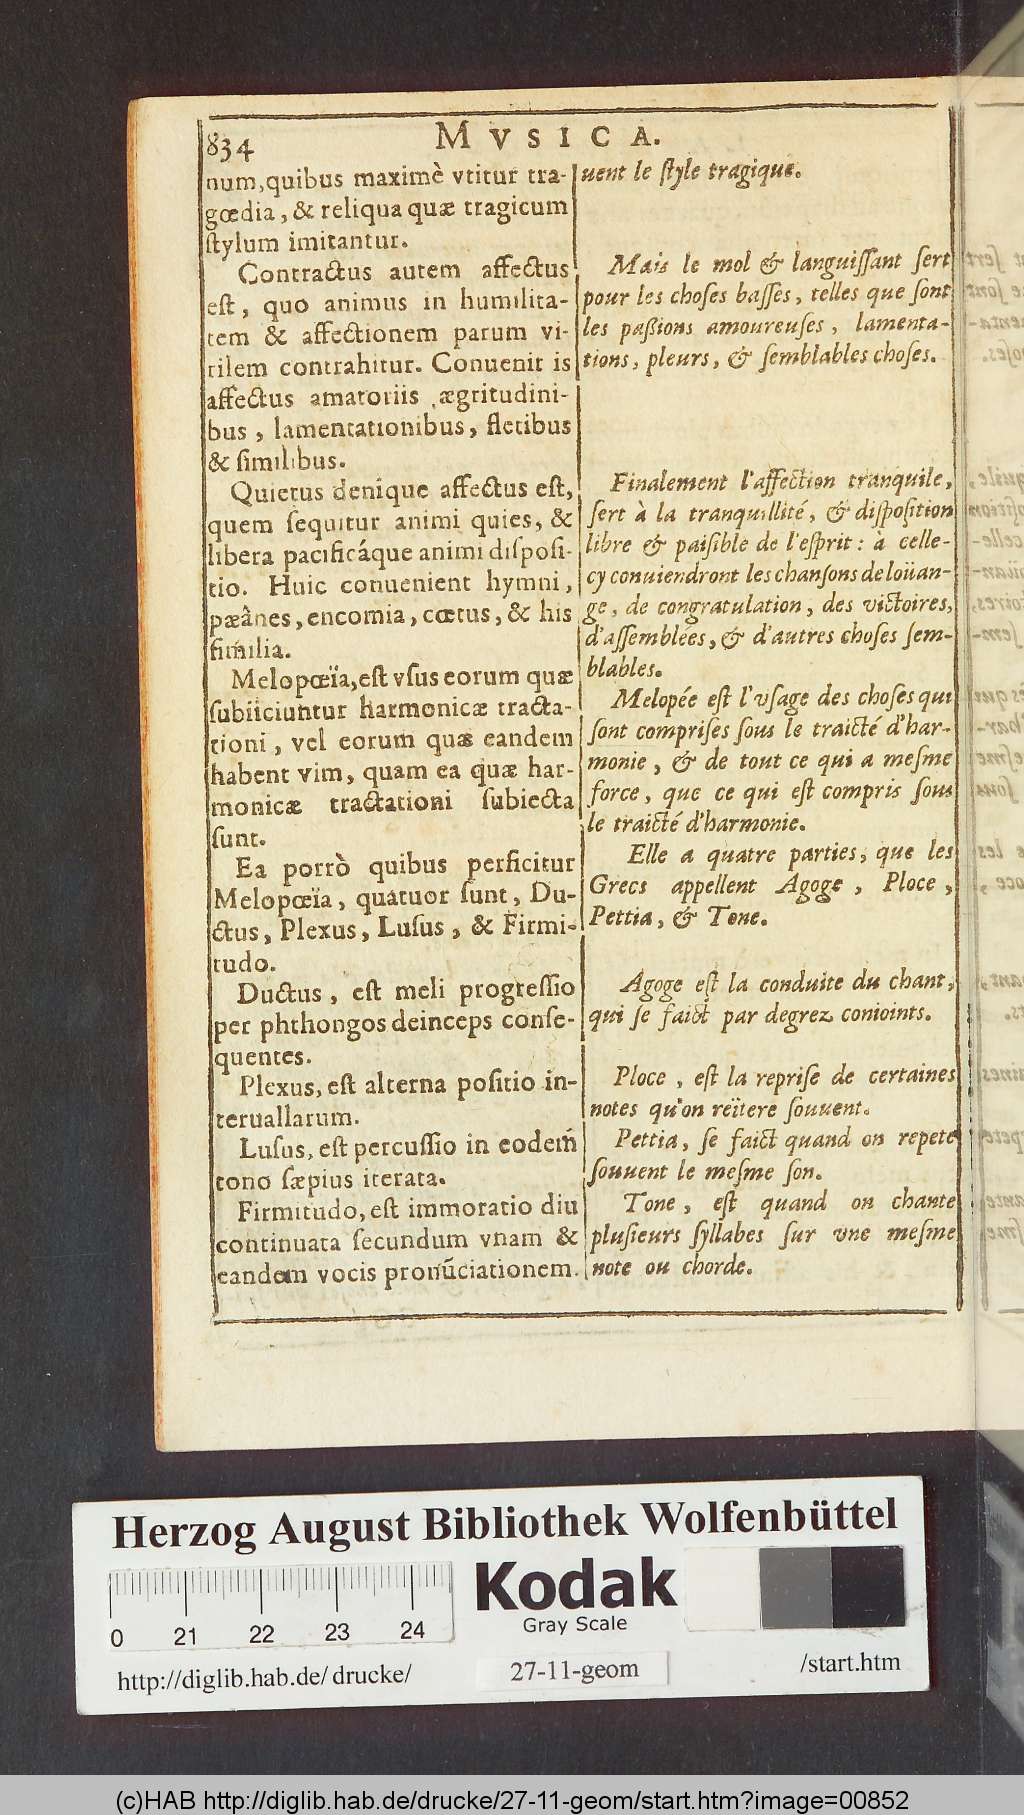 834
MVSICA.
num, quibus maximè vtitur tra-
gœdia, & reliqua quæ tragicum
ſtylum imitantur.
Contractus autem affectus
eſt, quo animus in humilita-
tem & affectionem parum vi-
rilem contrahitur. Conuenit is
affectus amatoriis ægritudini-
bus, lamentationibus, fletibus
& ſimilibus.
Quietus denique affectus eſt,
quem ſequitur animi quies, &
libera pacificáque animi diſpoſi-
tio. Huic conuenient hymni,
pæânes, encomia, cœtus, & his
ſimilia.
Melopœïa, eſt vſus eorum quæ
ſubiiciuntur harmonicæ tracta-
tioni, vel eorum quæ eandem
habent vim, quam ea quæ har-
monicæ tractationi ſubiecta
ſunt.
Ea porrò quibus perficitur
Melopœïa, quatuor ſunt, Du-
ctus, Plexus, Luſus, & Firmi-
tudo.
Ductus, eſt meli progreſſio
per phthongos deinceps conſe-
quentes.
Plexus, eſt alterna poſitio in-
teruallarum.
Luſus, eſt percuſſio in eodem̃
tono ſæpius iterata.
Firmitudo, eſt immoratio diu
continuata ſecundum vnam &
eandem vocis pronũciationem.
uent le ſtyle tragique.
Mais le mol & languiſſant ſert
pour les choſes baſſes, telles que ſont
les paßions amoureuſes, lamenta-
tions, pleurs, & ſemblables choſes.
Finalement l'affection tranquile,
ſert à la tranquillité, & diſpoſition
libre & paiſible de l'eſprit: à celle-
cy conuiendront les chanſons de loüan-
ge, de congratulation, des victoires,
d'aſſemblées, & d'autres choſes ſem-
blables.
Melopée eſt l'vſage des choſes qui
ſont compriſes ſous le traicté d'har-
monie, & de tout ce qui a meſme
force, que ce qui eſt compris ſous
le traicté d'harmonie.
Elle a quatre parties, que les
Grecs appellent Agoge, Ploce,
Pettia, & Tone.
Agoge eſt la conduite du chant,
qui ſe faict par degrez conioints.
Ploce, eſt la repriſe de certaines
notes qu'on reïtere ſouuent.
Pettia, ſe faict quand on repete
ſouuent le meſme ſon.
Tone, eſt quand on chante
pluſieurs ſyllabes ſur vne meſme
note ou chorde.
Herzog August Bibliothek Wolfenbüttel
Kodak
Gray Scale
0 21 22 23 24
http://diglib.hab.de/drucke/
27-11-geom
/start.htm
(c)HAB http://diglib.hab.de/drucke/27-11-geom/start.htm?image=00852